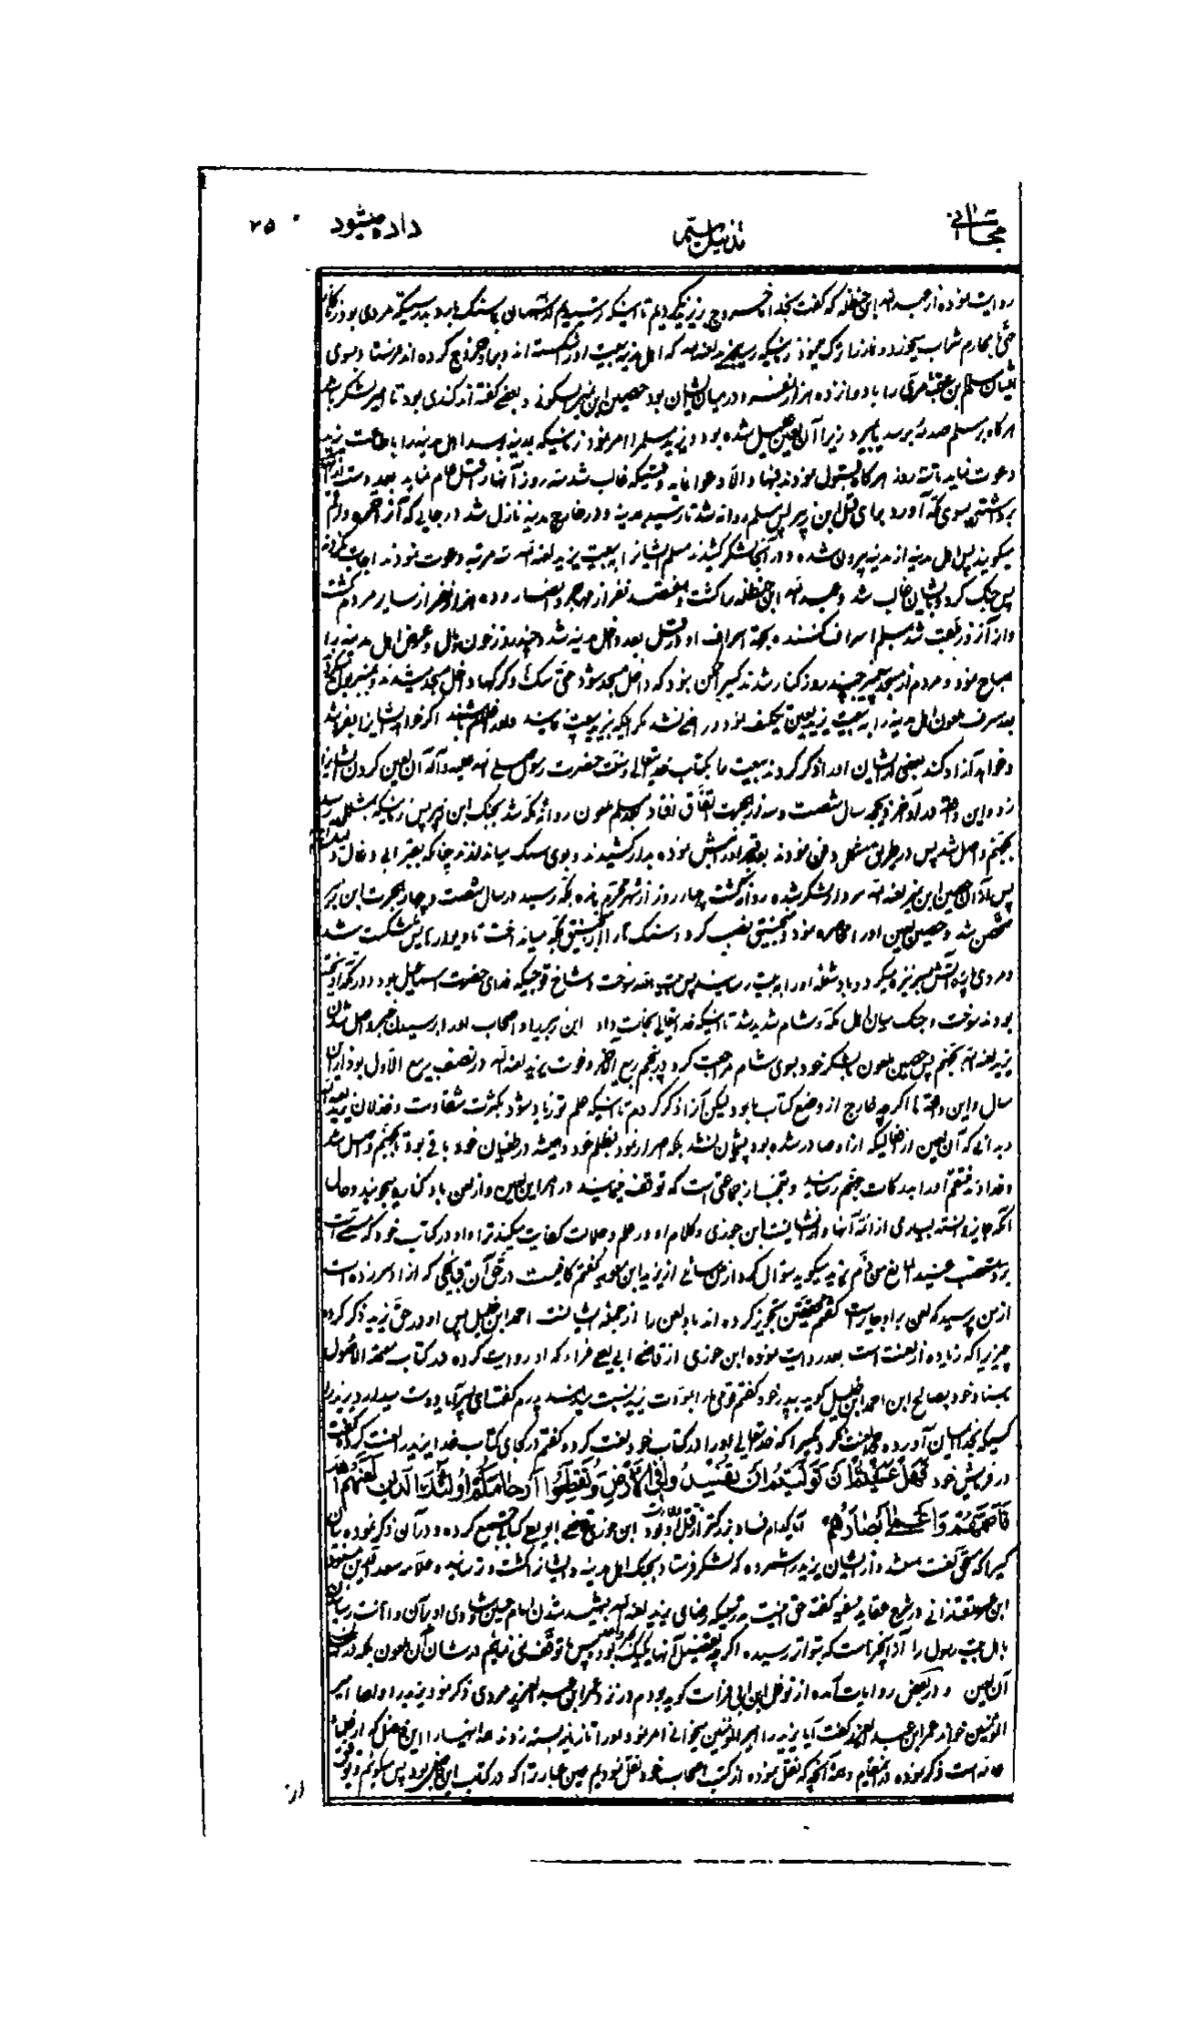 مجانی تذییل داده میشود ۲۵۰
روایت نموده از عبد الله ابن حنظله که گفت بخدا خروج بر یزید نکردیم تا اینکه ترسیدیم از آسمان سنگ ببارد بدرستیکه مردی بود
حتی محارم شراب میخورد و نماز را ترک مینمود زمانیکه رسید یزید لعنه الله که اهل مدینه بیعت او را شکسته اند و بنای خروج کرده اند فرستاد بسوی
ایشان مسلم بن عقبه مری را با دوازده هزار نفر و در میان ایشان بود حصین ابن نمیر سکونی و بعضی گفته اند کندی بود تا امیر لشکر باشد
هرگاه بر مسلم صدمه برسد یا بمیرد زیرا آن لعین علیل شده بود و یزید مسلم را امر نمود زمانیکه بمدینه رسد اهل مدینه را با طاعت یزید
دعوت نماید تا سه روز هرگاه قبول نمودند فبها والا دعوا نماید وقتیکه غالب شد سه روز آنها را قتل عام نماید بعد دست
برداشته بسوی مکه آورد برای قتل ابن زبیر پس مسلم روانه شد تا رسید بمدینه و در خارج مدینه نازل شد در جائی که آنرا حره واقم
میگویند پس اهل مدینه از مدینه بیرون شده و در آنجا لشکر کشیدند مسلم ایشانرا ببیعت یزید لعنه الله سه مرتبه دعوت نمود اجابت نکردند
پس جنگ کرد و بایشان غالب شد و عبد الله ابن حنظله را کشت و هفتصد نفر از مهاجر و انصار و ده هزار نفر از سایر مردم کشت
و از آنروز ملقب شد مسلم اسراف کننده بجهة اسراف او در قتل بعد داخل مدینه شد و چند روز خون و مال و عرض اهل مدینه را
مباح نمود و مردم از مسجد پیغمبر چند روز کنار شدند کسی را ممکن نبود که داخل مسجد شود حتی سگ و گرگها داخل مسجد میشدند و بمنبر بول
بعد مسرف ملعون اهل مدینه را به بیعت یزید لعین تکلیف نمود و راضی نشد مگر اینکه بیزید بیعت نمایند و غلام باشند اگر خواهد ایشانرا بفروشد
و خواهد آزاد کند بعضی از ایشان او را ذکر کردند بیعت ما بکتاب خدایتعالی و سنت حضرت رسول صلی الله علیه وآله آن لعین گردن ایشانرا
زد و این واقعه در آخر ذیحجه سال شصت و سه از هجرت اتفاق افتاد بعد مسلم ملعون روانه مکه شد بجنگ ابن زبیر پس زمانیکه بمشلل رسید
بجهنم واصل شد پس در طریق مشلل دفن نمودند بعد قبر او را نبش نموده بدار کشیدند و بوی سنگ میانداختند چنانکه بقبر ابی رغال
پس بعد از آن حصین ابن نمیر لعنه الله سردار لشکر شده روانه گشت چهار روز از شهر محرم مانده بمکه رسید در سال شصت و چهار هجرت ابن زبیر
متحصن شد و حصین لعین او را محاصره نمود و منجنیق نصب کرد و سنگها را از منجنیق بمکه میانداخت تا دیوارهایش شکست شد
و مردی پاره آتش بسر نیزه میکرد و باد شعله او را به بیت رسانید پس بیت الله سوخت و شاخ قوچیکه فدای حضرت اسماعیل بود و در مکه آویخته
بودند سوخت و جنگ میان اهل مکه و شام شدید شد تا اینکه خدایتعالی نجات داد ابن زبیر را و اصحاب او را برسیدن خبر واصل شدن
یزید لعنه الله بجهنم پس حصین ملعون با لشکر خود بسوی شام مراجعت کرد در پنجم ربیع الآخر و فوت یزید لعنه الله در نصف ربیع الاول بود از آن
سال و این واقعه ها اگر چه خارج از وضع کتاب ما بود لیکن آنرا ذکر کردم تا اینکه علم تو زیاد شود بکثرت شقاوت و خذلان یزید لعنه الله
و بدانی که آن لعین از افعالیکه از او صادر شده بود پشیمان نشد بلکه اصرار نمود بظلم خود و همیشه در طغیان خود باقی بود تا بجهنم واصل شد
و خداوند منتقم او را بدرکات جهنم رسانید و تعجب از جماعتی است که توقف مینمایند در امر این لعین و از لعن باو کناره میجویند و حال
آنکه جایز دانسته بسیاری از ائمه آنها و از ایشانست ابن جوزی و کلام او در علم و جلالت کفایت میکند ترا و او در کتاب خود که مسمی است
برد متعصب عنید المانع من ذم یزید میگوید سؤال کرد از من سائلی از یزید ابن معویه گفتم کافیست در حق آن قبایحی که از او سر زده است
از من پرسید که لعن بر او جایز است گفتم محققین تجویز کرده اند باو لعن را از جمله ایشانست احمد ابن حنبل پس او در حق یزید ذکر کرده
چیزیرا که زیاده از لعنت است بعد روایت نموده ابن جوزی از قاضی ابی یعلی فراء که او روایت کرده در کتاب معتمد الاصول
بسند خود بصالح ابن احمد ابن حنبل گوید به پدر خود گفتم قومی ما را بمودت یزید نسبت میدهند پدرم گفت ای پسر آیا دوست میدارد یزید را
کسیکه بخدا ایمان آورده و چرا لعنت نکرد کسیرا که خدایتعالی او را در کتاب خود لعنت کرده گفتم در کجای کتاب خدا یزید را لعنت کرده گفت
در فرمایش خود فَهَلْ عَسَيْتُمْ إِنْ تَوَلَّيْتُمْ أَنْ تُفْسِدُوا فِي الْأَرْضِ وَتُقَطِّعُوا أَرْحَامَكُمْ أُولَئِكَ الَّذِينَ لَعَنَهُمُ اللَّهُ
فَأَصَمَّهُمْ وَأَعْمَى أَبْصَارَهُمْ آیا کدام فساد بزرگتر از قتل بود ابن جوزی گوید قاضی ابو یعلی کتابی جمع کرده و در آن ذکر نموده بیان
کسیرا که مستحق لعنت میشود و از ایشان یزید را شمرده که لشکر فرستاد بجنگ اهل مدینه و ایشانرا کشت و ترسانید و علامه سعد الدین مسعود
ابن عمر تفتازانی در شرح عقاید نسفیه گفته حق اینست بدرستیکه رضای یزید لعنه الله بشهید شدن امام حسین و شادی او بآن و اهانت رسانیدن
باهل بیت رسول را از آن چیزهاست که بتواتر رسیده اگر چه تفصیل آنها یک یک بود پس ما توقف نمی نمائیم در شأن آن ملعون بلکه در ایمان
آن لعین و در بعض روایات آمده از نوفل ابن ابی فرات گوید بودم در نزد عمر ابن عبد العزیز مردی ذکر نمود یزید را و او را امیر
المؤمنین خواند عمر ابن عبد العزیز گفت آیا یزید را امیر المؤمنین میخوانی امر نمود او را تازیانه بیست زدند
عامه است ذکر نموده در این مقام و همه آنچه که نقل نموده از کتب اصحاب خود نقل نمودیم عین عبارت را که در کتب این فاضل بود پس میگوئیم و توفیق
از